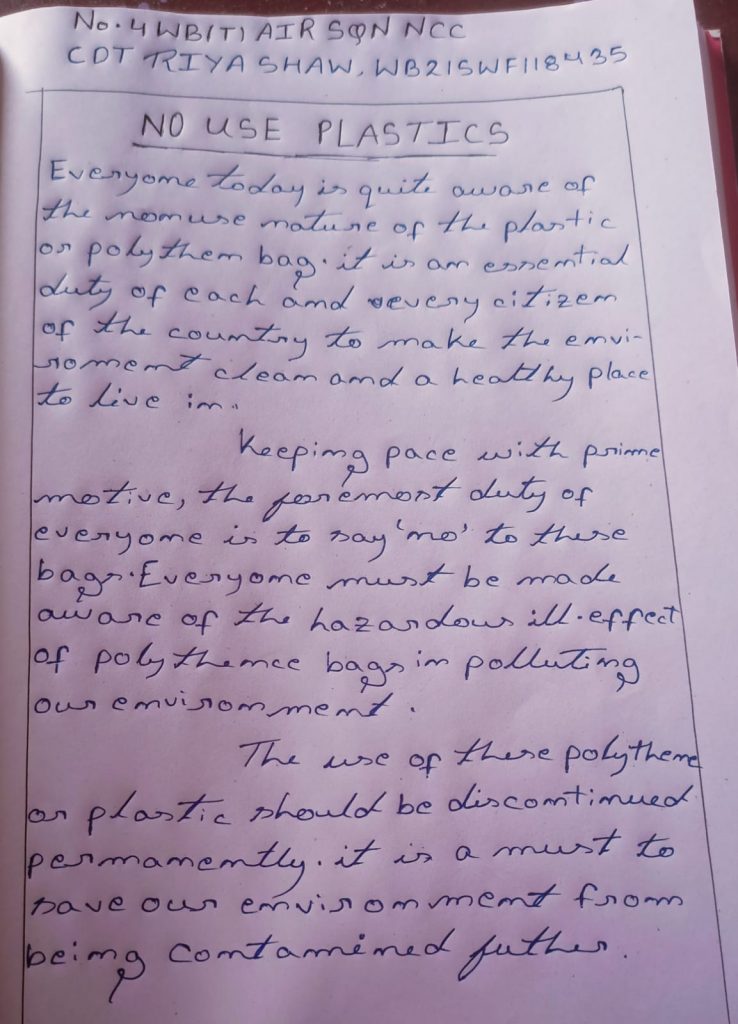 No. 4 WB(T) AIR SQN NCC
CDT RIYA SHAW, WB21SWF118435
NO USE PLASTICS
Everyone today is quite aware of
the nonuse nature of the plastic
or polythen bag. it is an essential
duty of each and every citizen
of the country to make the envi-
roment clean and a healthy place
to live in.
Keeping pace with prime
motive, the foremost duty of
everyone is to say 'no' to these
bags. Everyone must be made
aware of the hazardous ill-effect
of polythence bags in polluting
our environment.
The use of these polythene
or plastic should be discontinued
permanently. it is a must to
save our environment from
being contamined futher.